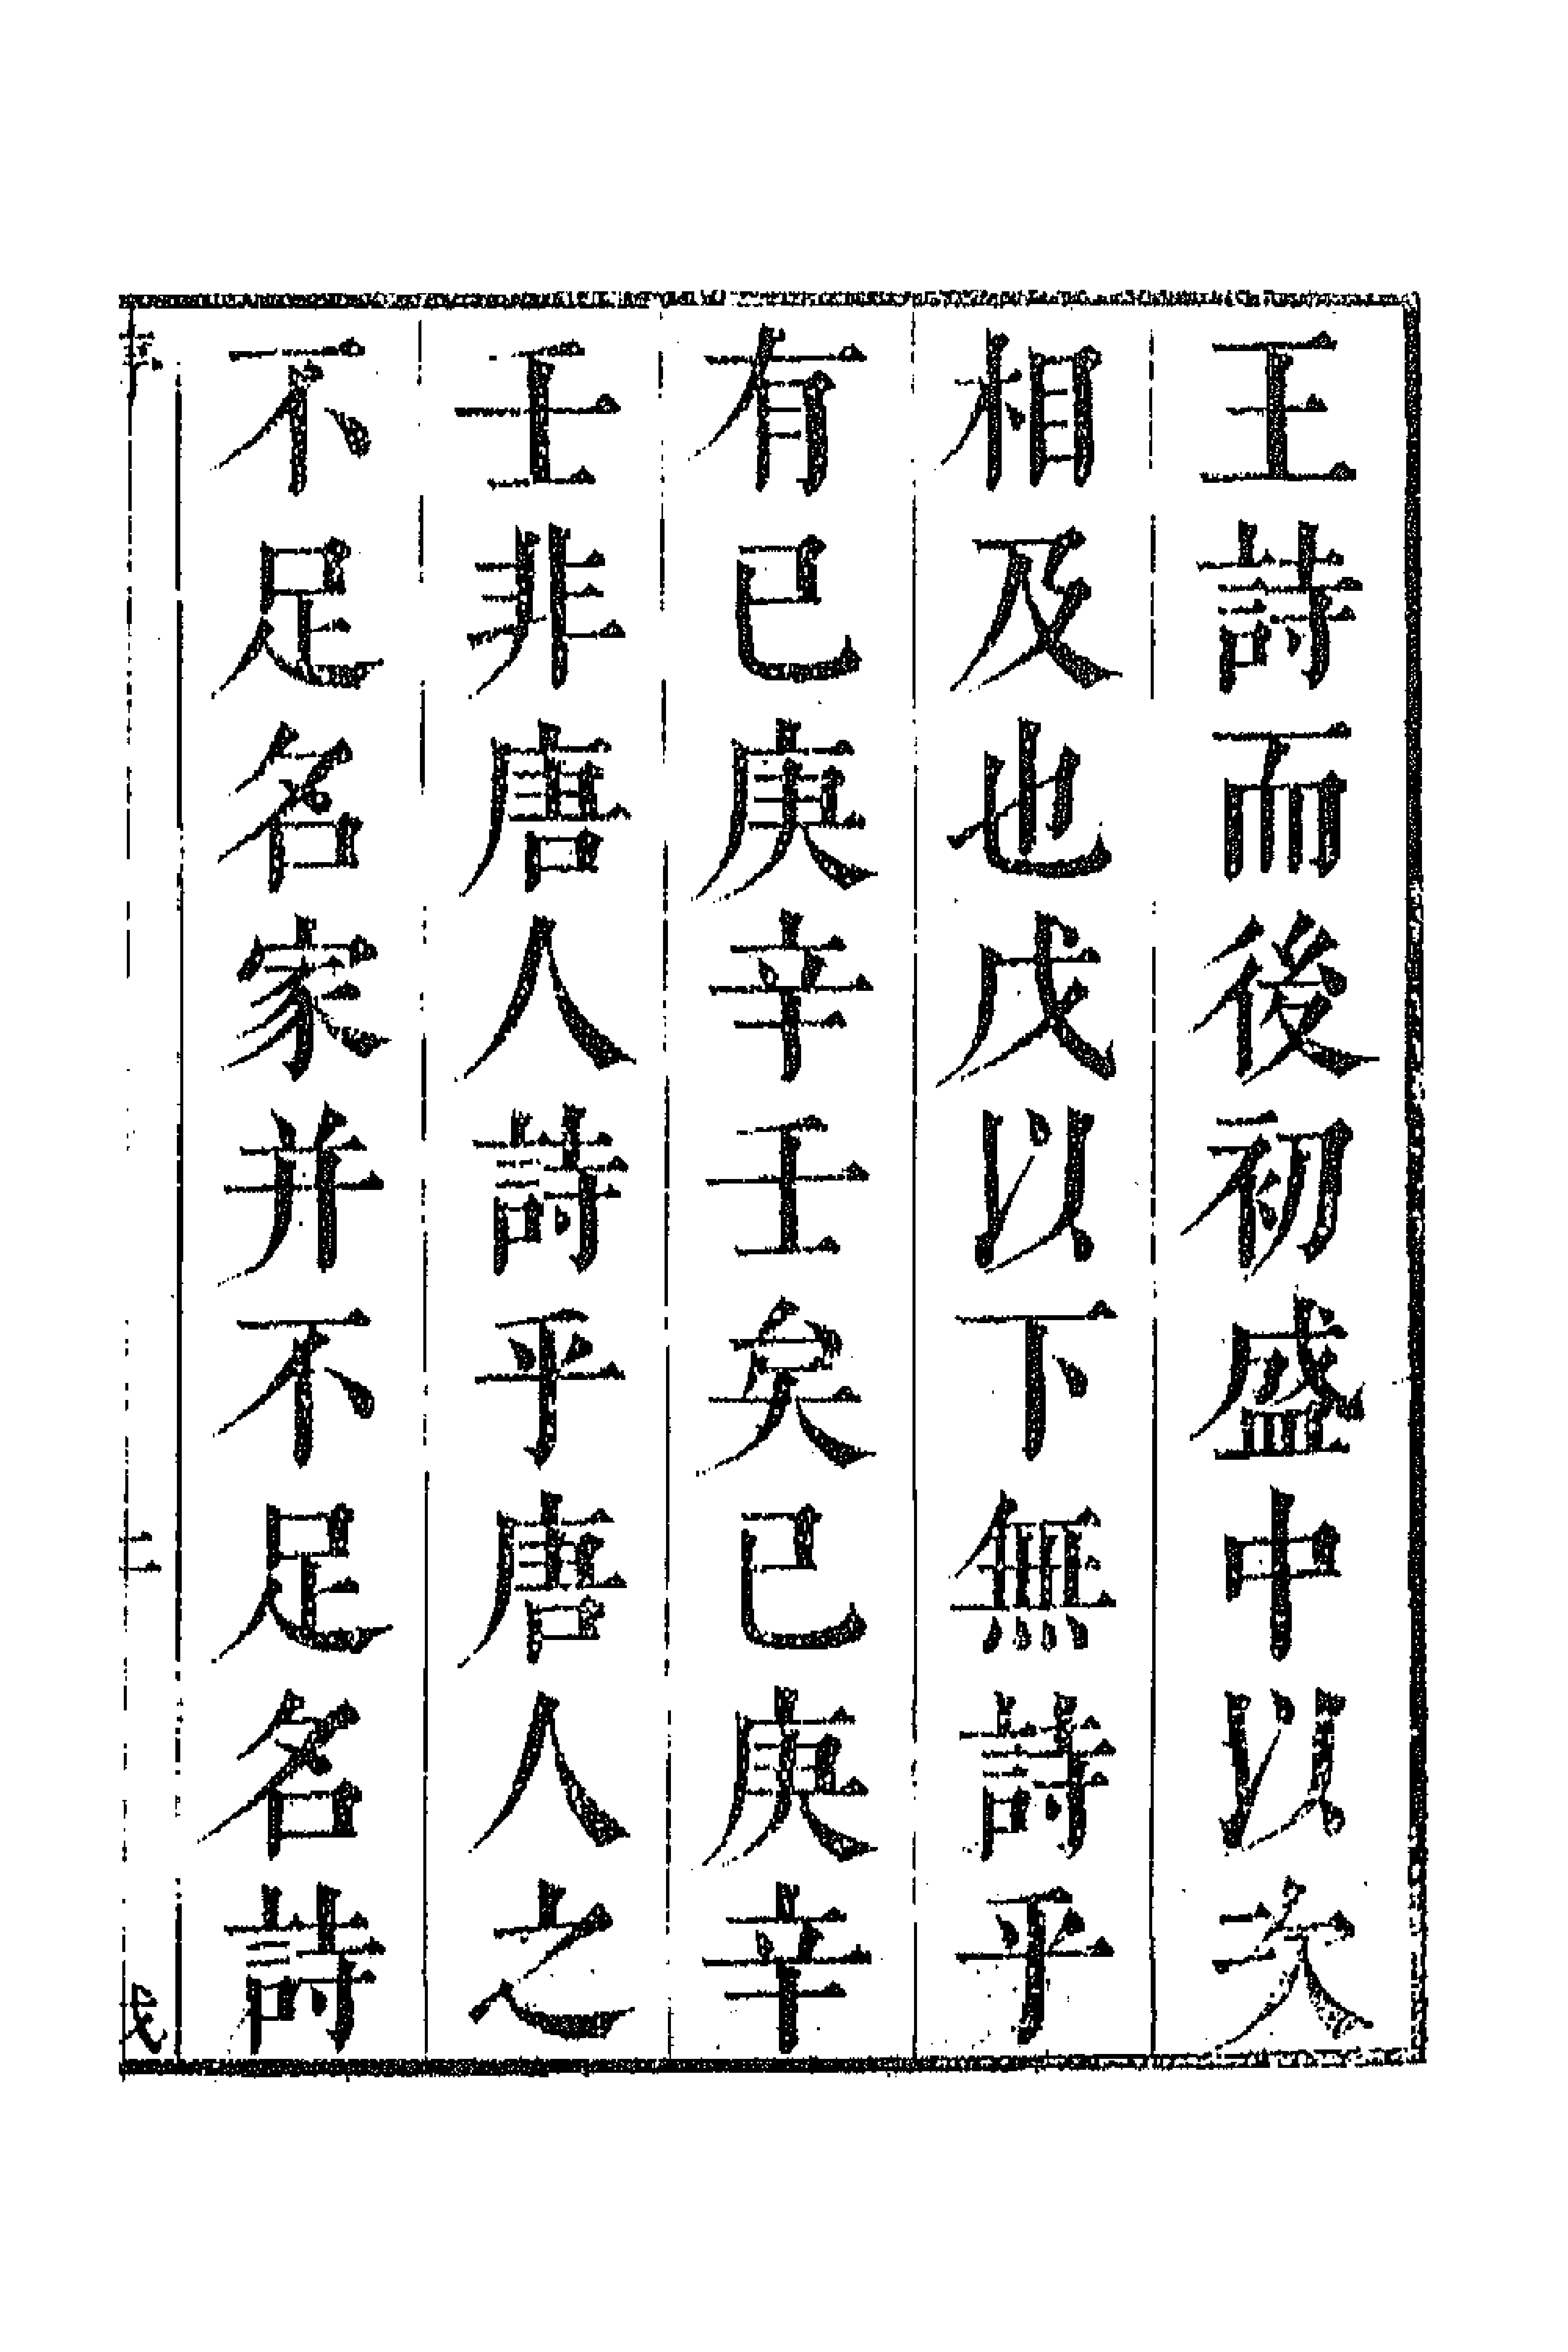 王詩而後初盛中以次
相及也戊以下無詩乎
有已庚辛壬矣已庚辛
壬非唐人詩乎唐人之
不足名家并不足名詩